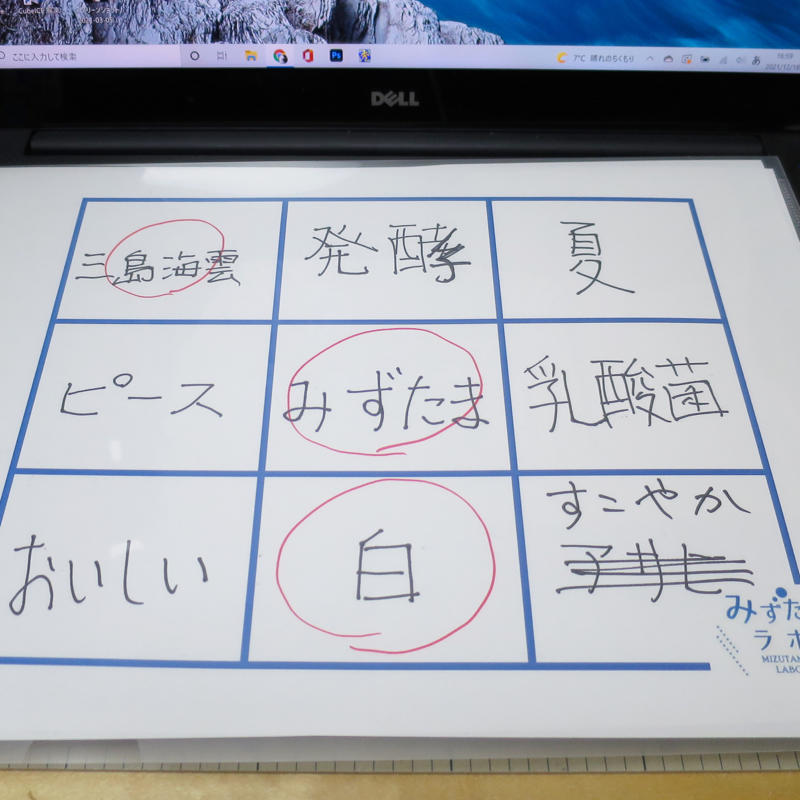 ここに入力して検索
7°C 晴れのちくもり
あ
16:59
2021/12/16
DELL
三島海雲
発酵
夏
ピース
みずたま
乳酸菌
おいしい
白
すこやか
みずた
ラボ
MIZUTAM
LABO